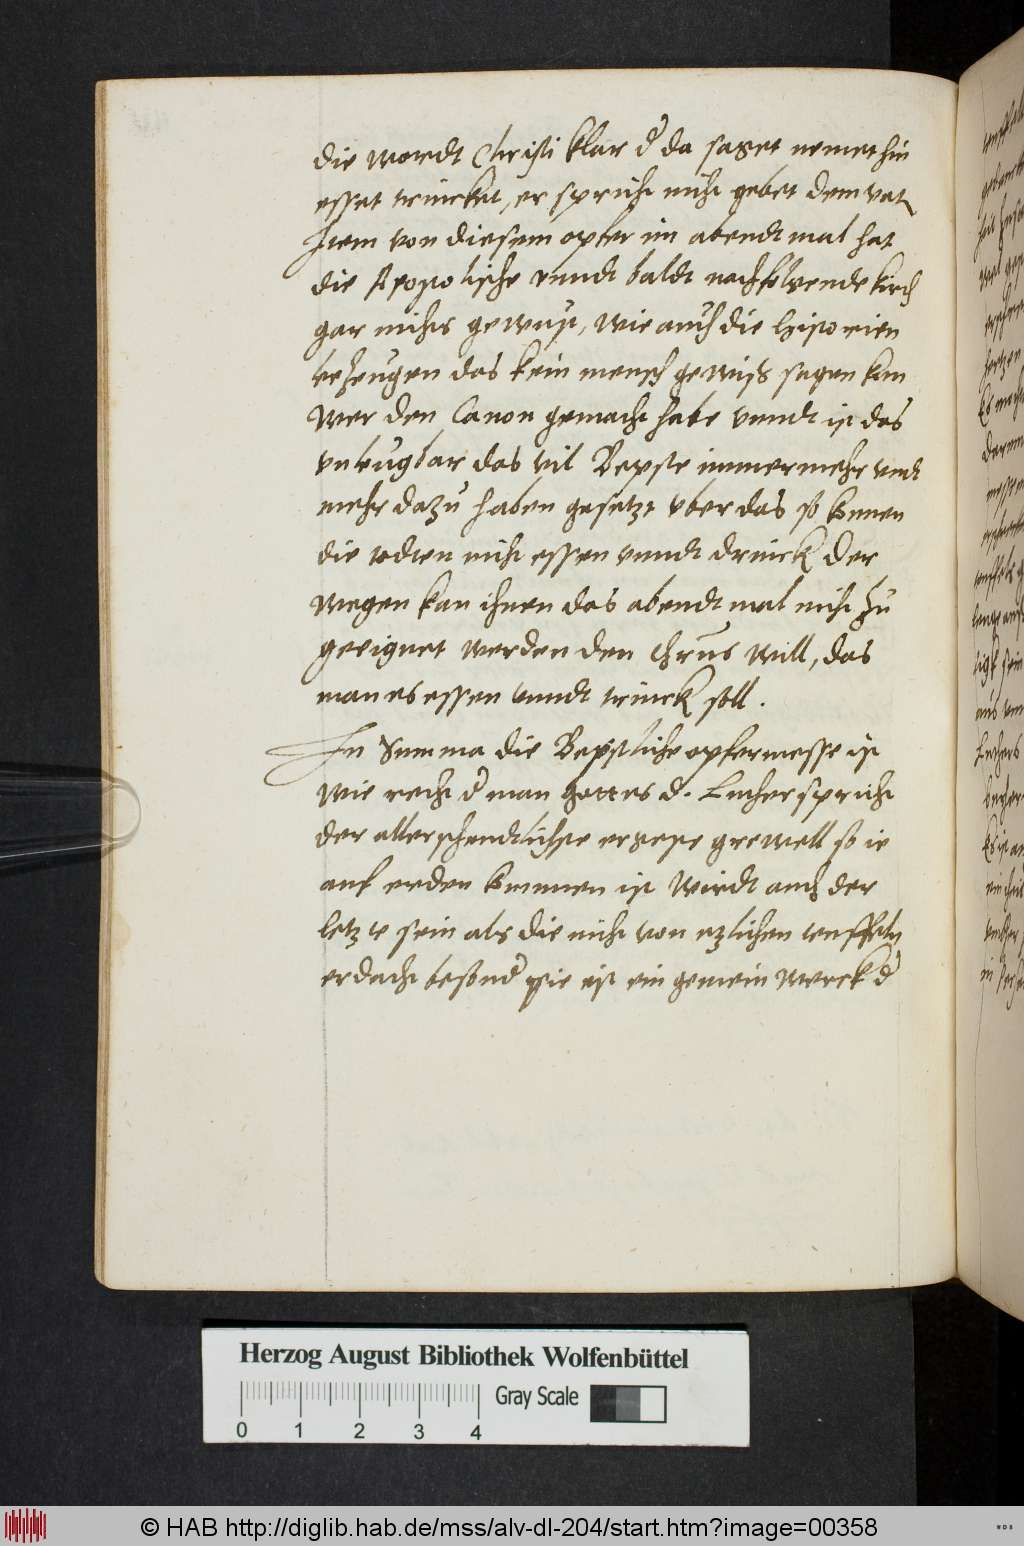 die wordt Christi klar d' da saget nemet hin
esset trincket, er spricht nicht gebet dem vat'
Item von diesem opfer im abendtmal hat
die Apostolische unndt baldt nachfolgende kirch
gar nichts gewust, wie auch die Historien
bezeugen das kein mensch gewiß sagen kan
wer den Canon gemacht habe unndt ist das
unleugbar das vil Bepste immermehr undt
mehr dazu haben gesetzt uber das so konnen
die todten nicht essen unndt drinck der
wegen kan ihnen das abendtmal nicht zu
geeignet werden den Chrus will, das
man es essen unndt trinck soll.
In Summa die Bepstliche opfermesse ist
wie recht d' man Gottes d. Luther spricht
der allerschendtlichste ergeste grewell so ie
auf erden kommen ist wirdt auch der
letzte sein als die nicht von etzlichen teuffeln
erdacht besond' sie ist ein gemein werck d'
Herzog August Bibliothek Wolfenbüttel
0 1 2 3 4 Gray Scale
© HAB http://diglib.hab.de/mss/alv-dl-204/start.htm?image=00358